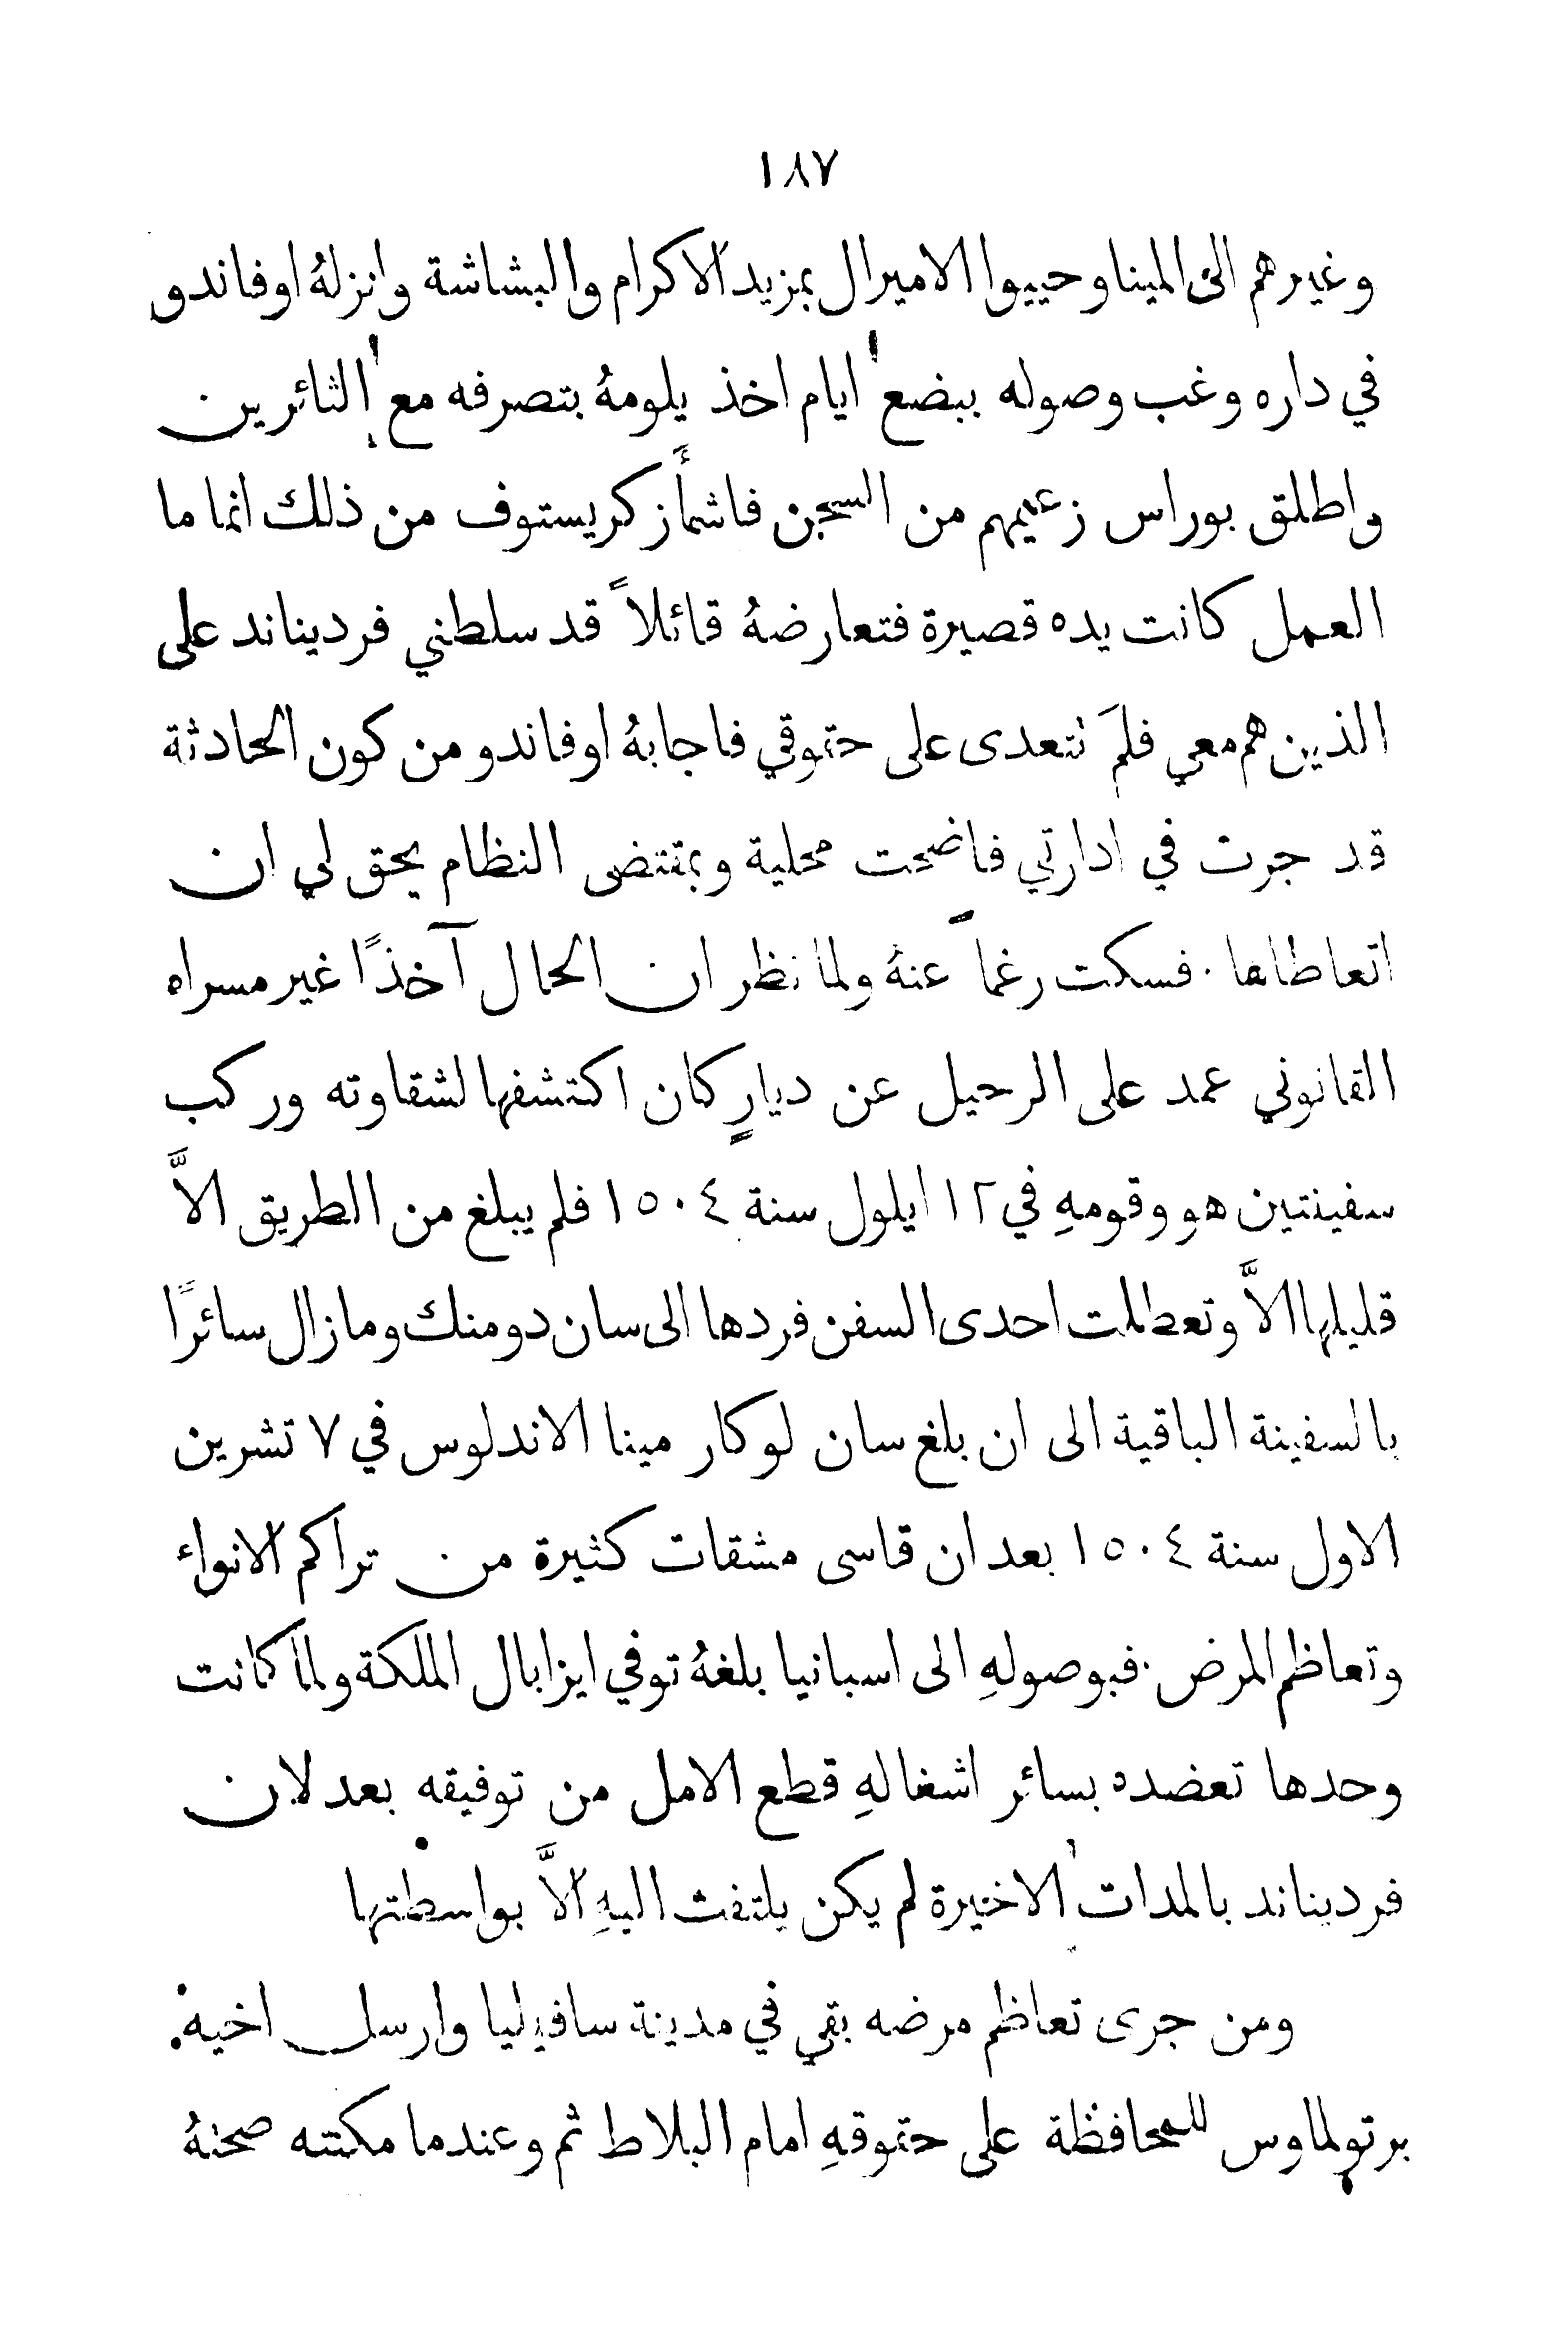 ١٨٧
وغيرهم الى المينا وحييوا الاميرال بمزيد الاكرام والبشاشة وانزلهُ اوفاندو
في داره وغب وصوله ببضع ايام اخذ يلومهُ بتصرفه مع الثائرين
واطلق بوراس زعيمهم من السجن فاشمأَز كريستوف من ذلك انما ما
العمل كانت يده قصيرة فتعارضهُ قائلاً قد سلطني فرديناند على
الذين هم معي فلمَ نتعدى على حقوقي فاجابهُ اوفاندو من كون الحادثة
قد جرت في ادارتي فاضحت محلية وبمقتضى النظام يحق لي ان
اتعاطاها . فسكت رغماً عنهُ ولما نظر ان الحال آخذًا غير مسراه
القانوني عمد على الرحيل عن ديارٍ كان اكتشفها لشقاوته وركب
سفينتين هو وقومهِ في ١٢ ايلول سنة ١٥٠٤ فلم يبلغ من الطريق الاَّ
قليلها الاَّ وتعطلت احدى السفن فردها الى سان دومنك وما زال سائرًا
بالسفينة الباقية الى ان بلغ سان لوكار مينا الاندلوس في ٧ تشرين
الاول سنة ١٥٠٤ بعد ان قاسى مشقات كثيرة من تراكم الانواء
وتعاظم المرض . فبوصولهِ الى اسبانيا بلغهُ توفي ايزابال الملكة ولما كانت
وحدها تعضده بسائر اشغالهِ قطع الامل من توفيقه بعد لان
فرديناند بالمدات الاخيرة لم يكن يلتفت اليهِ الاَّ بواسطتها
ومن جرى تعاظم مرضه بقي في مدينة سافيليا وارسل اخيه
برتولماوس للمحافظة على حقوقهِ امام البلاط ثم وعندما مكنته صحتهُ